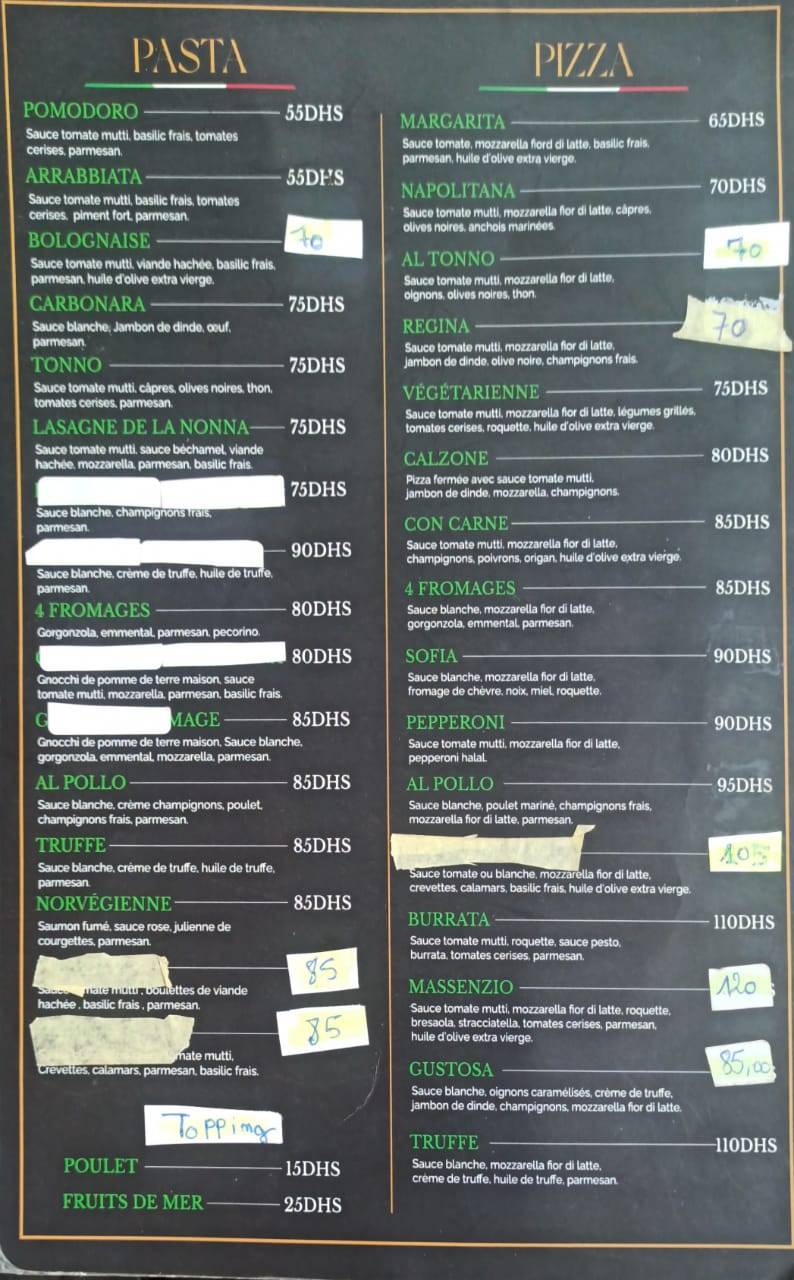 PASTA
POMODORO 55DHS
Sauce tomate mutti, basilic frais, tomates
cerises, parmesan.
ARRABBIATA 55DHS
Sauce tomate mutti, basilic frais, tomates
cerises, piment fort, parmesan.
BOLOGNAISE 70
Sauce tomate mutti, viande hachée, basilic frais,
parmesan, huile d'olive extra vierge.
CARBONARA 75DHS
Sauce blanche, Jambon de dinde, œuf,
parmesan.
TONNO 75DHS
Sauce tomate mutti, câpres, olives noires, thon,
tomates cerises, parmesan.
LASAGNE DE LA NONNA 75DHS
Sauce tomate mutti, sauce béchamel, viande
hachée, mozzarella, parmesan, basilic frais.
75DHS
Sauce blanche, champignons frais,
parmesan.
90DHS
Sauce blanche, crème de truffe, huile de truffe,
parmesan.
4 FROMAGES 80DHS
Gorgonzola, emmental, parmesan, pecorino.
80DHS
Gnocchi de pomme de terre maison, sauce
tomate mutti, mozzarella, parmesan, basilic frais.
G MAGE 85DHS
Gnocchi de pomme de terre maison, Sauce blanche,
gorgonzola, emmental, mozzarella, parmesan.
AL POLLO 85DHS
Sauce blanche, crème champignons, poulet,
champignons frais, parmesan.
TRUFFE 85DHS
Sauce blanche, crème de truffe, huile de truffe,
parmesan.
NORVÉGIENNE 85DHS
Saumon fumé, sauce rose, julienne de
courgettes, parmesan.
85
mate mutti, boulettes de viande
hachée, basilic frais, parmesan.
85
mate mutti,
Crevettes, calamars, parmesan, basilic frais.
Topping
POULET 15DHS
FRUITS DE MER 25DHS
PIZZA
MARGARITA 65DHS
Sauce tomate, mozzarella fiord di latte, basilic frais,
parmesan, huile d'olive extra vierge.
NAPOLITANA 70DHS
Sauce tomate mutti, mozzarella fior di latte, câpres,
olives noires, anchois marinées.
AL TONNO 70
Sauce tomate mutti, mozzarella fior di latte,
oignons, olives noires, thon.
REGINA 70
Sauce tomate mutti, mozzarella fior di latte,
jambon de dinde, olive noire, champignons frais.
VÉGÉTARIENNE 75DHS
Sauce tomate mutti, mozzarella fior di latte, légumes grillés,
tomates cerises, roquette, huile d'olive extra vierge.
CALZONE 80DHS
Pizza fermée avec sauce tomate mutti,
jambon de dinde, mozzarella, champignons.
CON CARNE 85DHS
Sauce tomate mutti, mozzarella fior di latte,
champignons, poivrons, origan, huile d'olive extra vierge.
4 FROMAGES 85DHS
Sauce blanche, mozzarella fior di latte,
gorgonzola, emmental, parmesan.
SOFIA 90DHS
Sauce blanche, mozzarella fior di latte,
fromage de chèvre, noix, miel, roquette.
PEPPERONI 90DHS
Sauce tomate mutti, mozzarella fior di latte,
pepperoni halal.
AL POLLO 95DHS
Sauce blanche, poulet mariné, champignons frais,
mozzarella fior di latte, parmesan.
105
Sauce tomate ou blanche, mozzarella fior di latte,
crevettes, calamars, basilic frais, huile d'olive extra vierge.
BURRATA 110DHS
Sauce tomate mutti, roquette, sauce pesto,
burrata, tomates cerises, parmesan.
MASSENZIO 120
Sauce tomate mutti, mozzarella fior di latte, roquette,
bresaola, stracciatella, tomates cerises, parmesan,
huile d'olive extra vierge.
GUSTOSA 85,00
Sauce blanche, oignons caramélisés, crème de truffe,
jambon de dinde, champignons, mozzarella fior di latte.
TRUFFE 110DHS
Sauce blanche, mozzarella fior di latte,
crème de truffe, huile de truffe, parmesan.